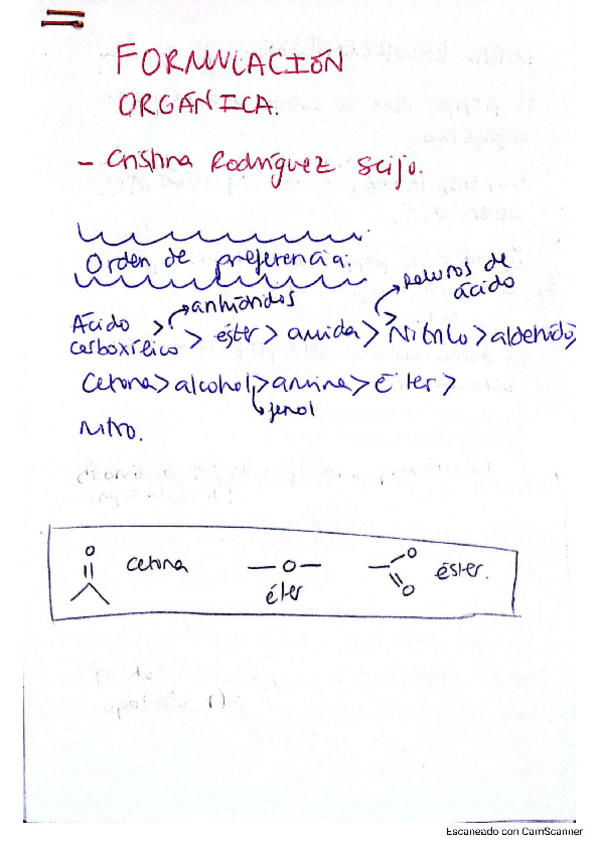 FORMULACIÓN
ORGÁNICA.
- Cristina Rodríguez Seijo.
Orden de preferencia:
anhídridos
de ácido
Ácido carboxílico > > éster > amida > Nitrilo > aldehído >
Cetona > alcohol > amina > Éter >
fenol
nitro.
O
cetona
-O-
éter
O
O
éster.
Escaneado con CamScanner